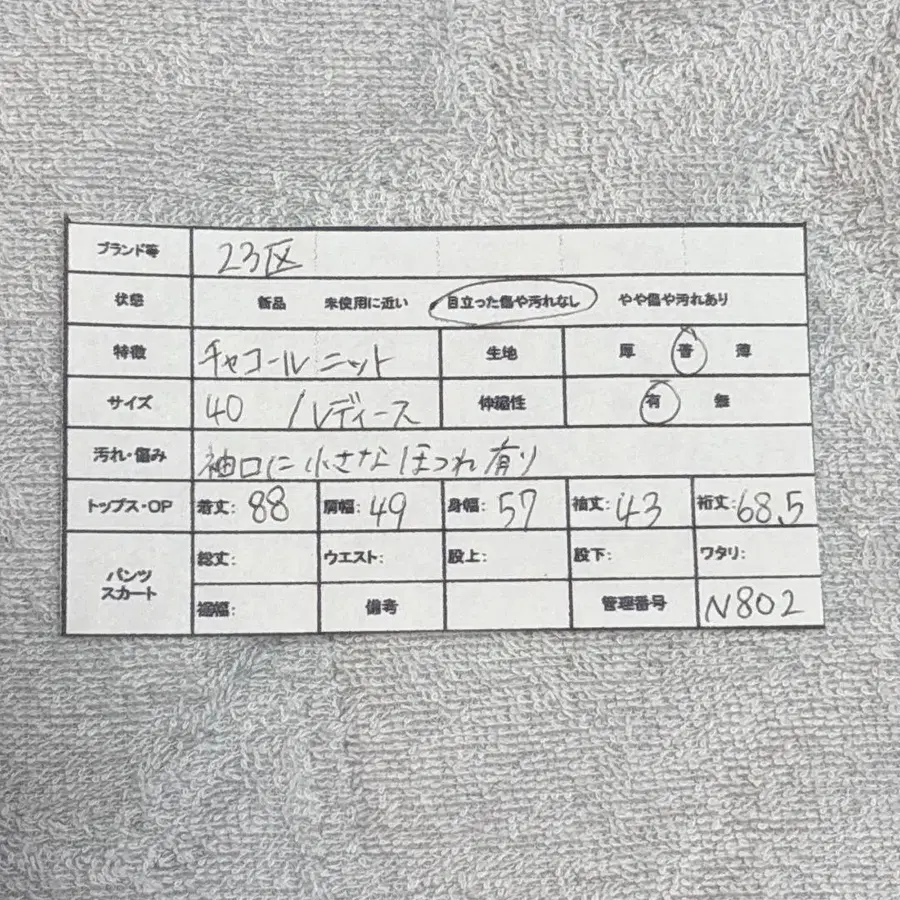 ブランド等 23区
状態 新品 未使用に近い 目立った傷や汚れなし やや傷や汚れあり
特徴 チャコールニット 生地 厚 普 薄
サイズ 40 / レディース 伸縮性 有 無
汚れ・傷み 袖口に小さなほつれ有り
トップス・OP 着丈: 88 肩幅: 49 身幅: 57 袖丈: 43 裄丈: 68.5
パンツ スカート 総丈: ウエスト: 股上: 股下: ワタリ:
裾幅: 備考 管理番号 N802